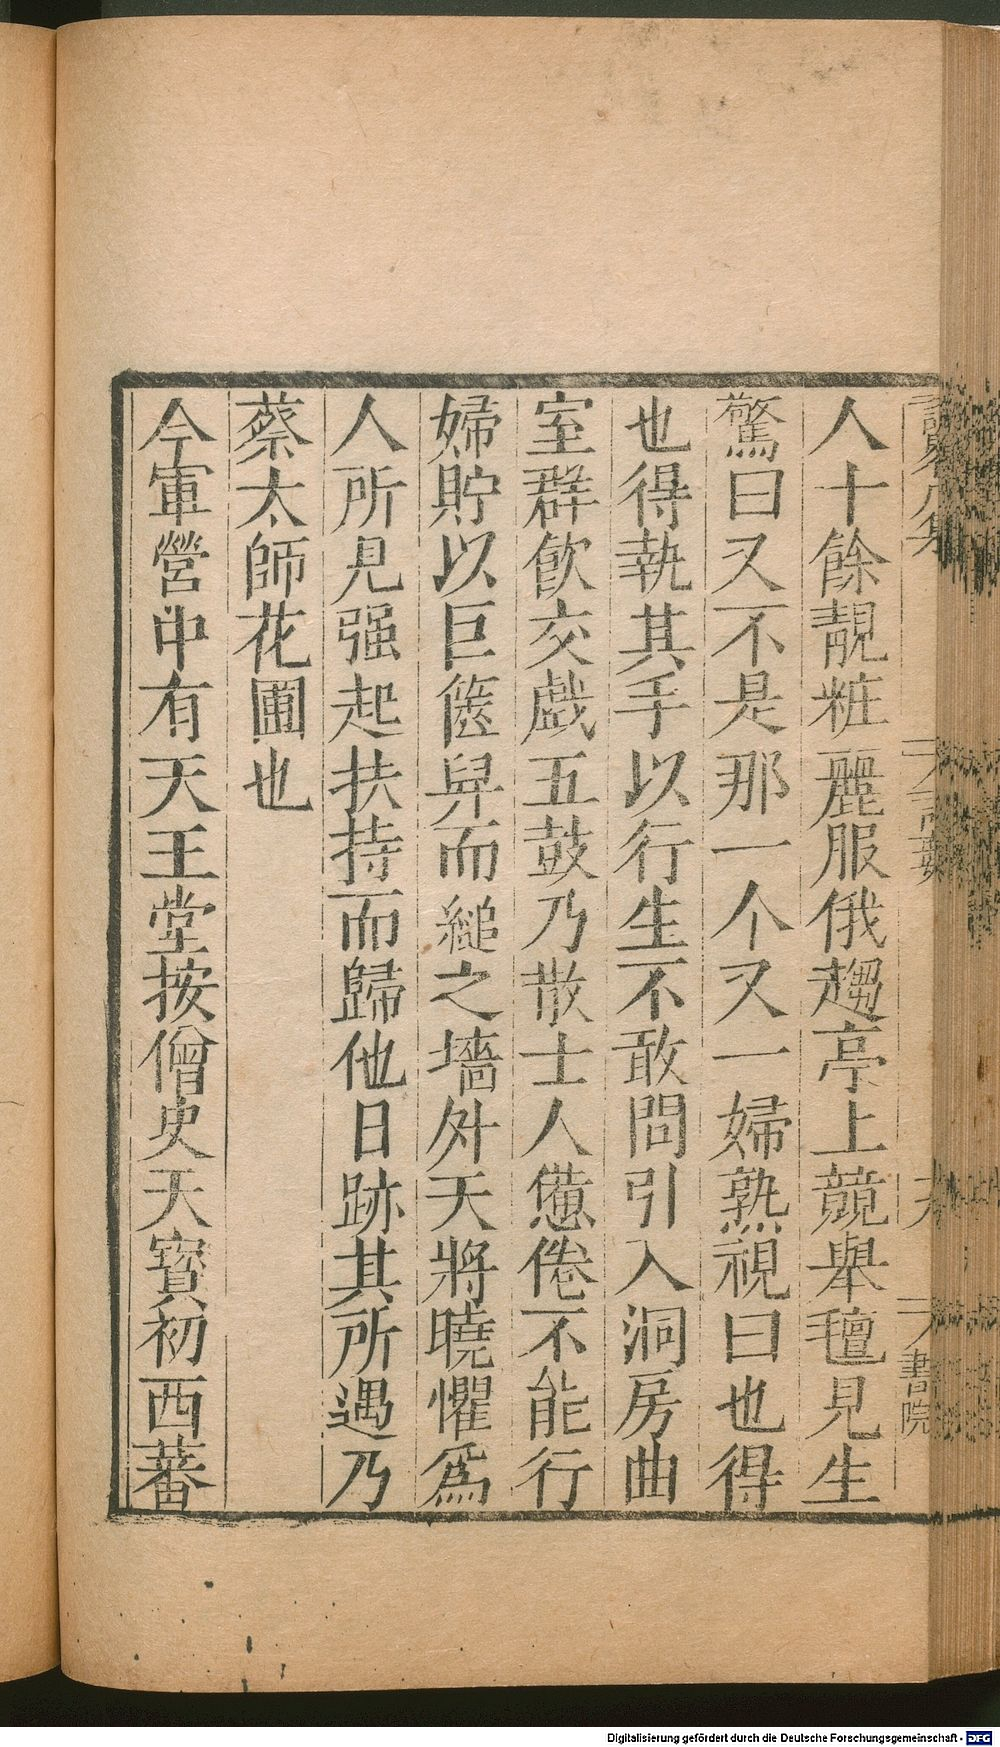 人十餘靚粧麗服俄趨亭上競舉氊見生
驚曰又不是那一个又一婦熟視曰也得
也得執其手以行生不敢問引入洞房曲
室群飲交戲五鼓乃散士人憊倦不能行
婦貯以巨篋舁而縋之墻外天將曉懼爲
人所見强起扶持而歸他日跡其所遇乃
蔡太師花圃也
今軍營中有天王堂按僧史天寶初西蕃
書院
Digitalisierung gefördert durch die Deutsche Forschungsgemeinschaft - DFG